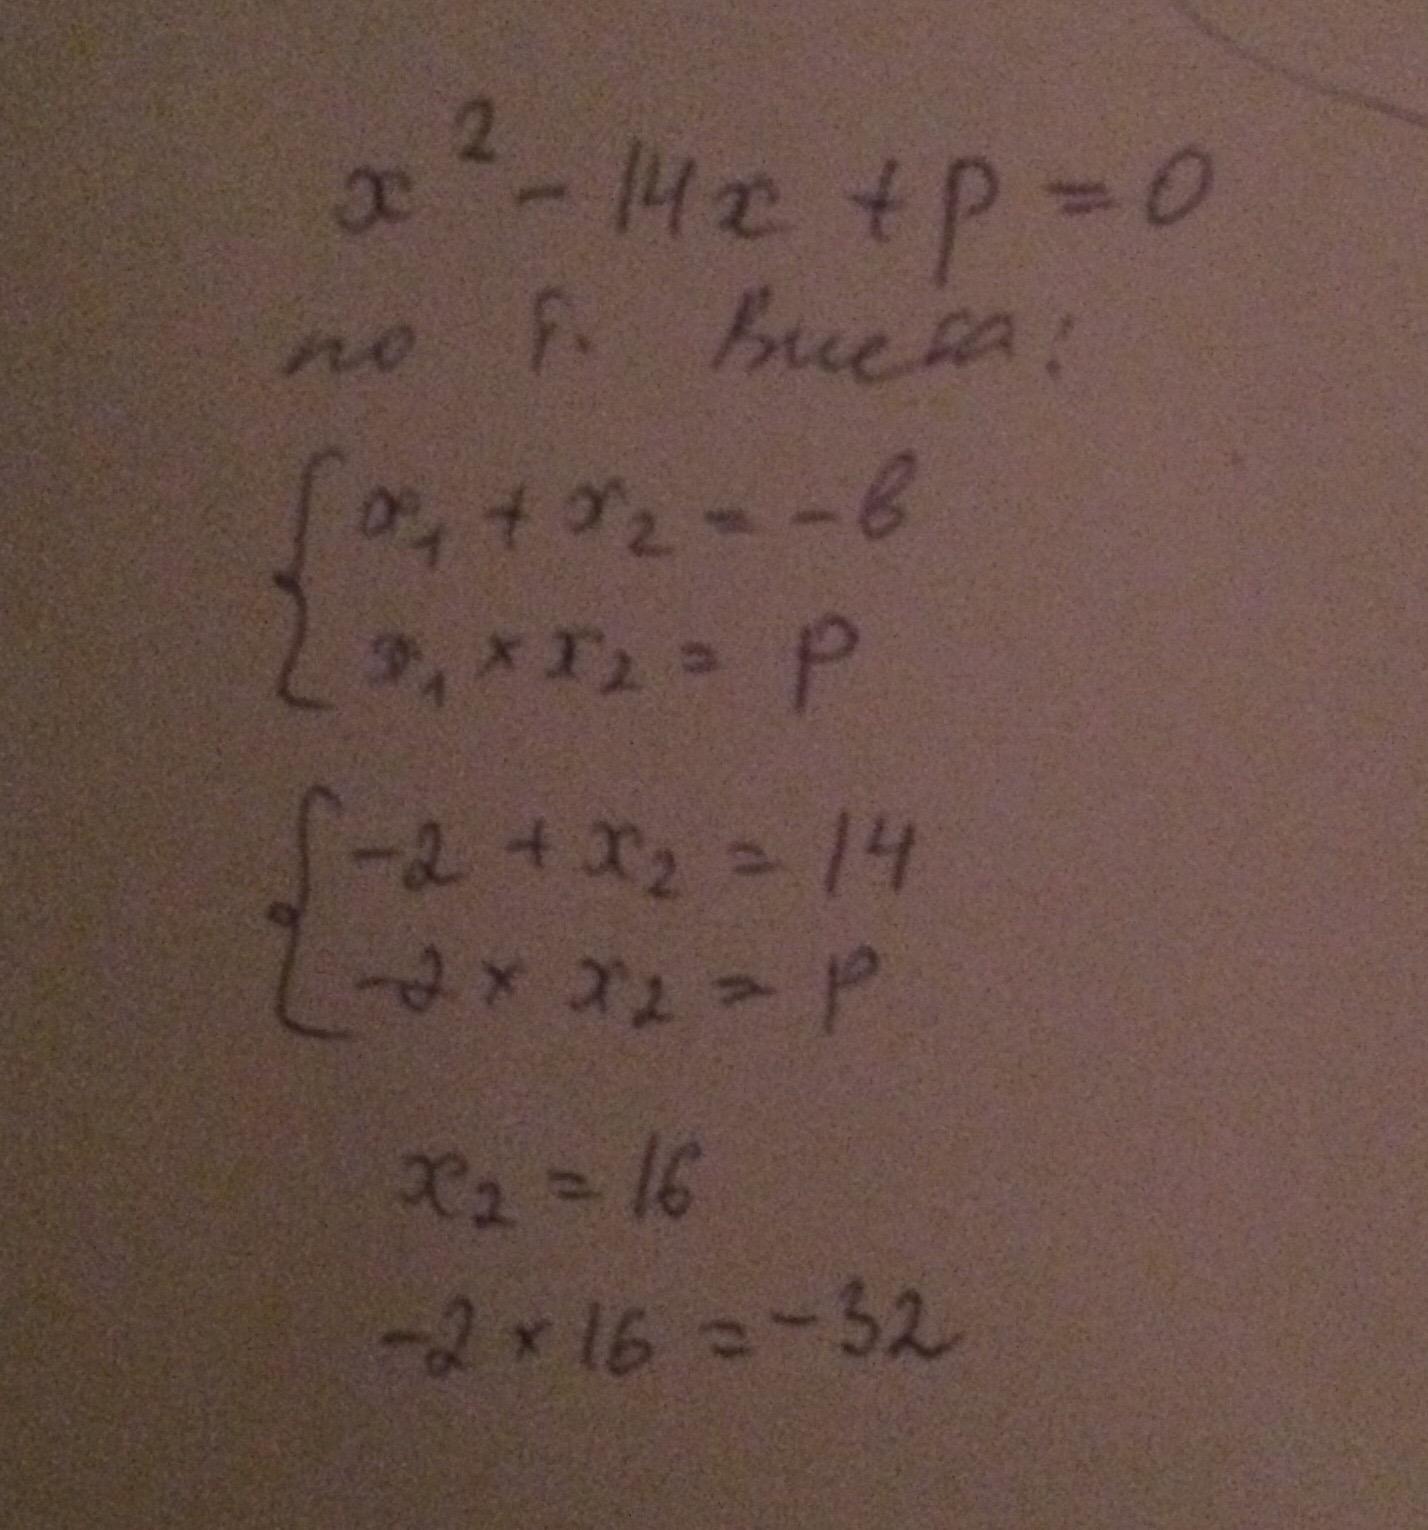 x² - 14x + p = 0
по т. Виета:
x₁ + x₂ = -b
x₁ × x₂ = p
-2 + x₂ = 14
-2 × x₂ = p
x₂ = 16
-2 × 16 = -32